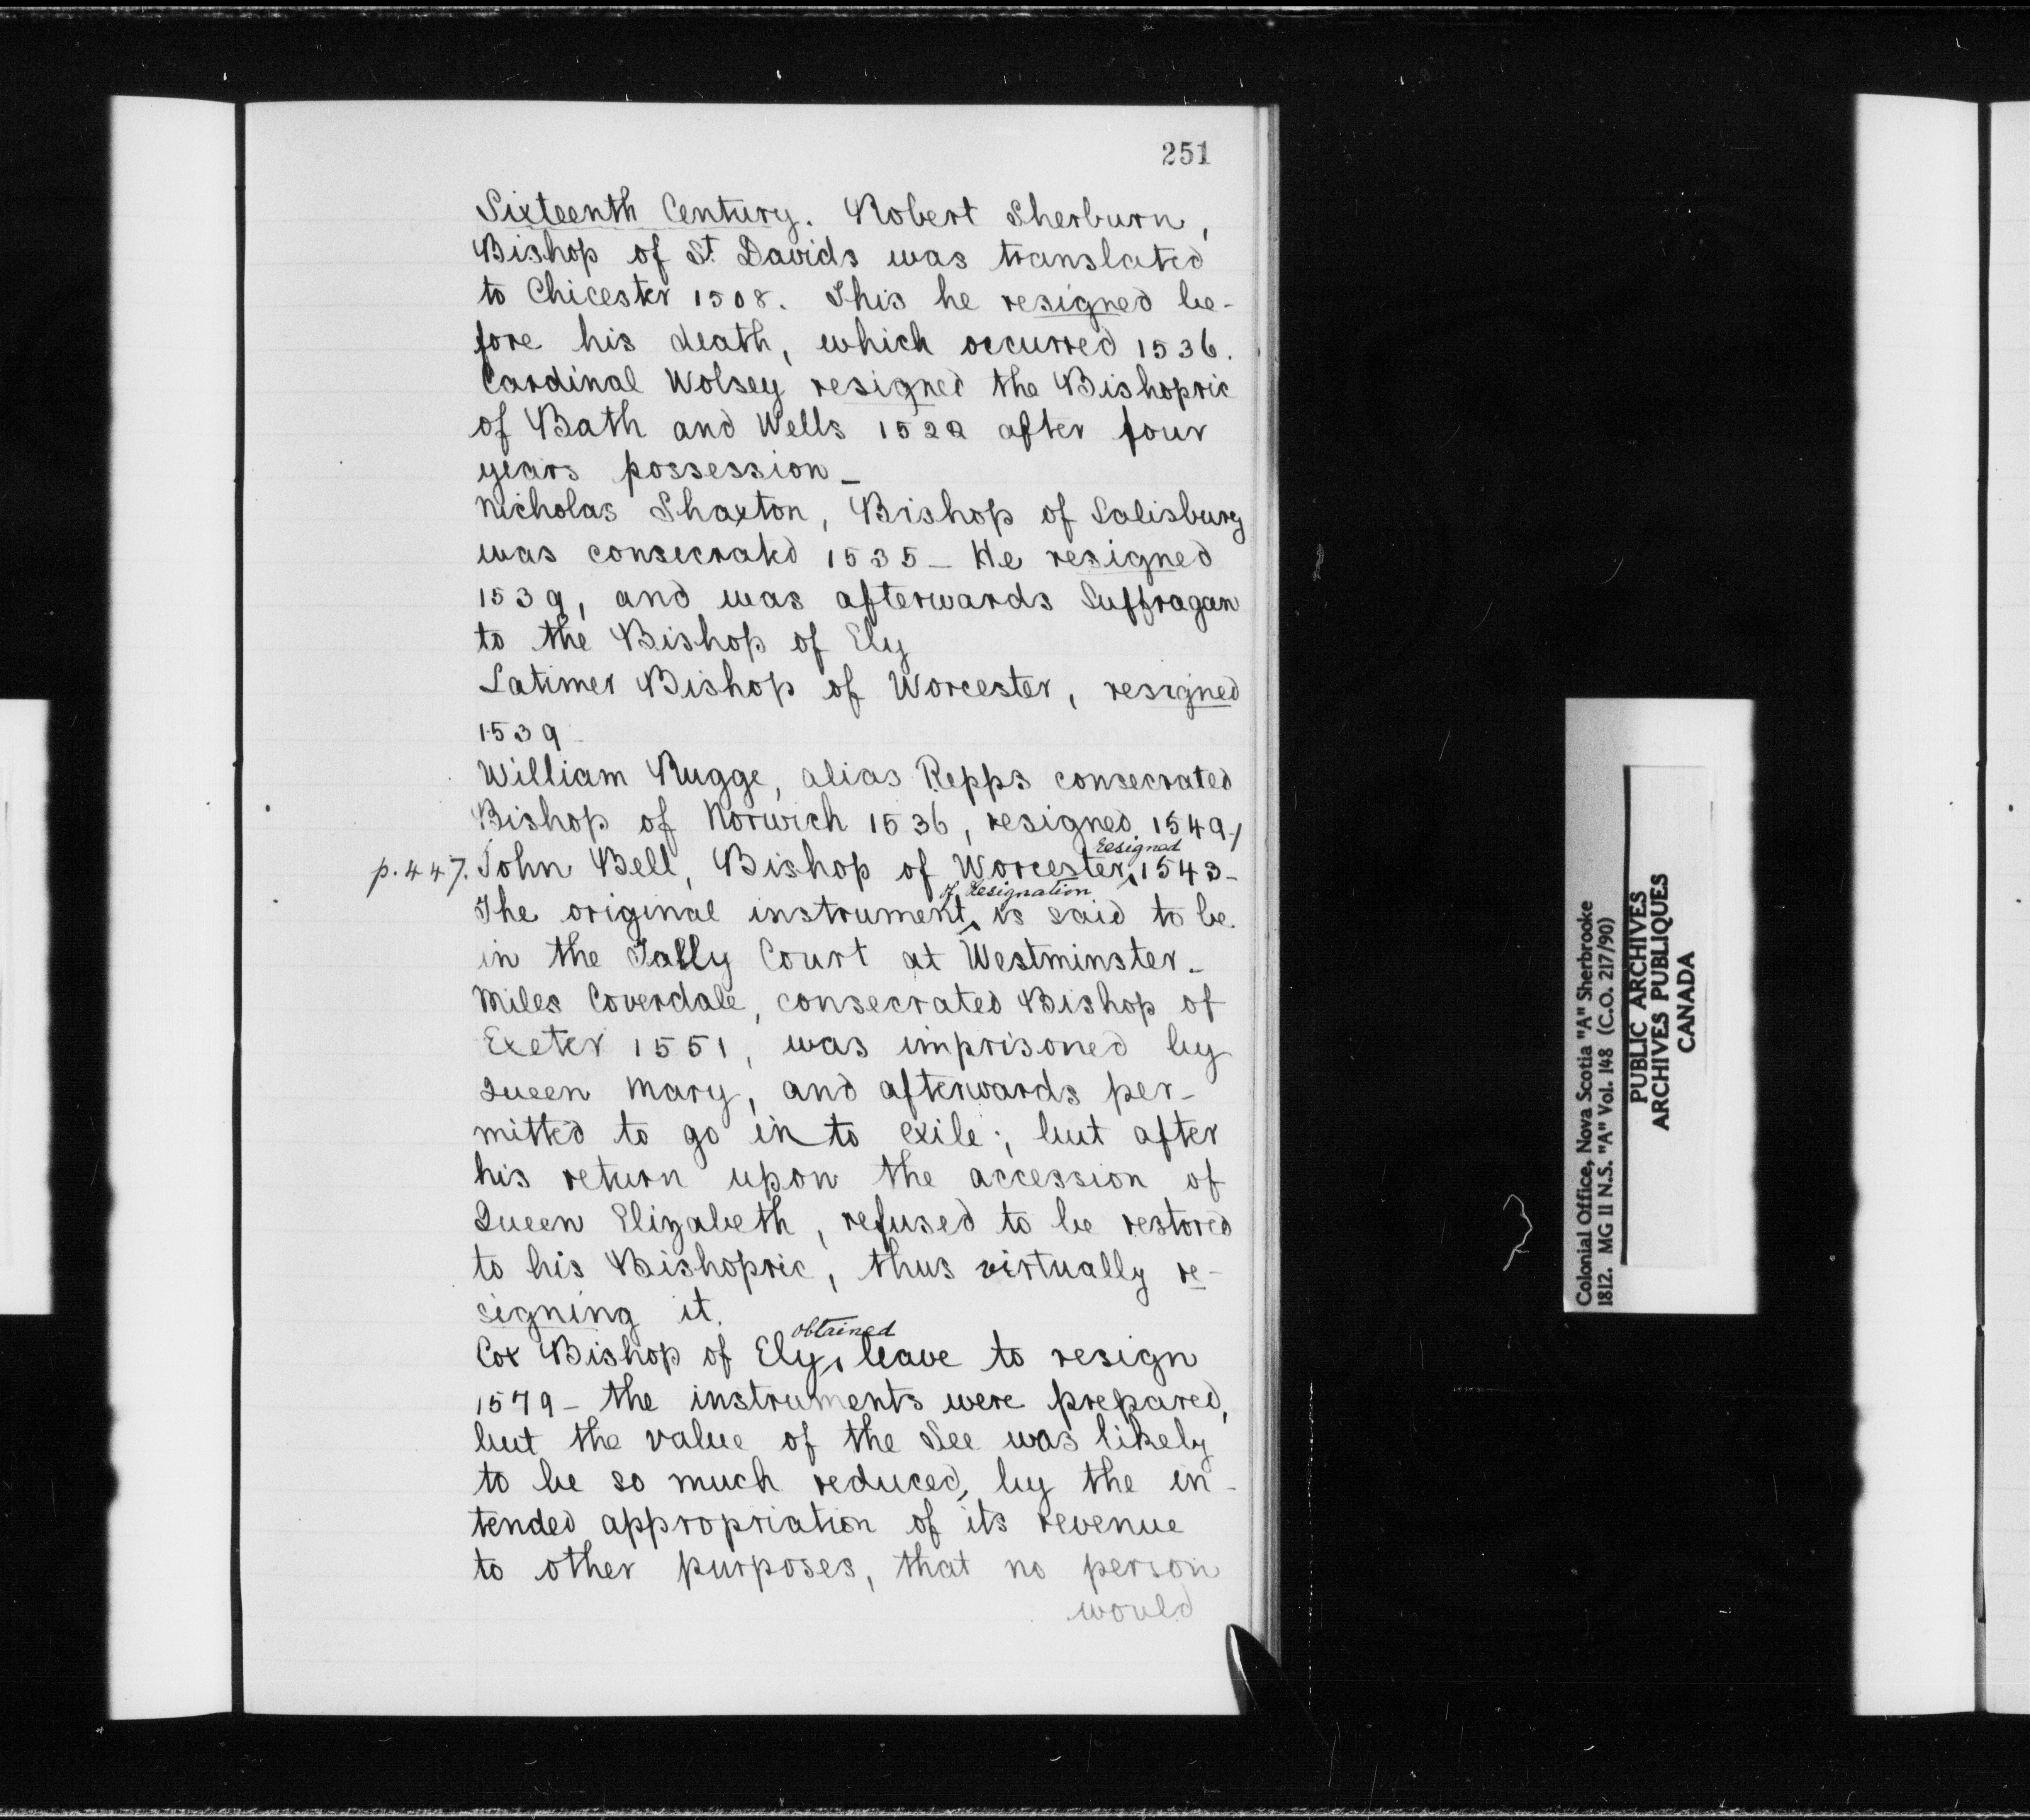 251
Sixteenth Century. Robert Sherburn,
Bishop of St. Davids was translated
to Chicester 1508. This he resigned be-
fore his death, which occurred 1536.
Cardinal Wolsey resigned the Bishopric
of Bath and Wells after four
years possession_
Nicholas Shaxton, Bishop of Salisbury
was consecrated 1535_ He resigned
1539, and was afterwards Suffragan
to the Bishop of Ely
Latimer Bishop of Worcester, resigned
1539_
William Rugge, alias Repps consecrated
Bishop of Norwich 1536, resigned. 1549/
resigned
p.447. John Bell, Bishop of Worcester, 1543-
of resignation
The original instrument is said to be
in the Tally Court at Westminster_
Miles Coverdale, consecrated Bishop of
Exeter 1551, was imprisoned by
Queen Mary, and afterwards per-
mitted to go into exile; but after
his return upon the accession of
Queen Elizabeth, refused to be restored
to his Bishopric, thus virtually re-
signing it.
obtained
Cox Bishop of Ely, leave to resign
1579_ the instruments were prepared,
but the value of the See was likely
to be so much reduced, by the in-
tended appropriation of its revenue
to other purposes, that no person
would
Colonial Office, Nova Scotia "A" Sherbrooke
1812. MG 11 N.S. "A" Vol. 148 (C.O. 217/90)
PUBLIC ARCHIVES
ARCHIVES PUBLIQUES
CANADA